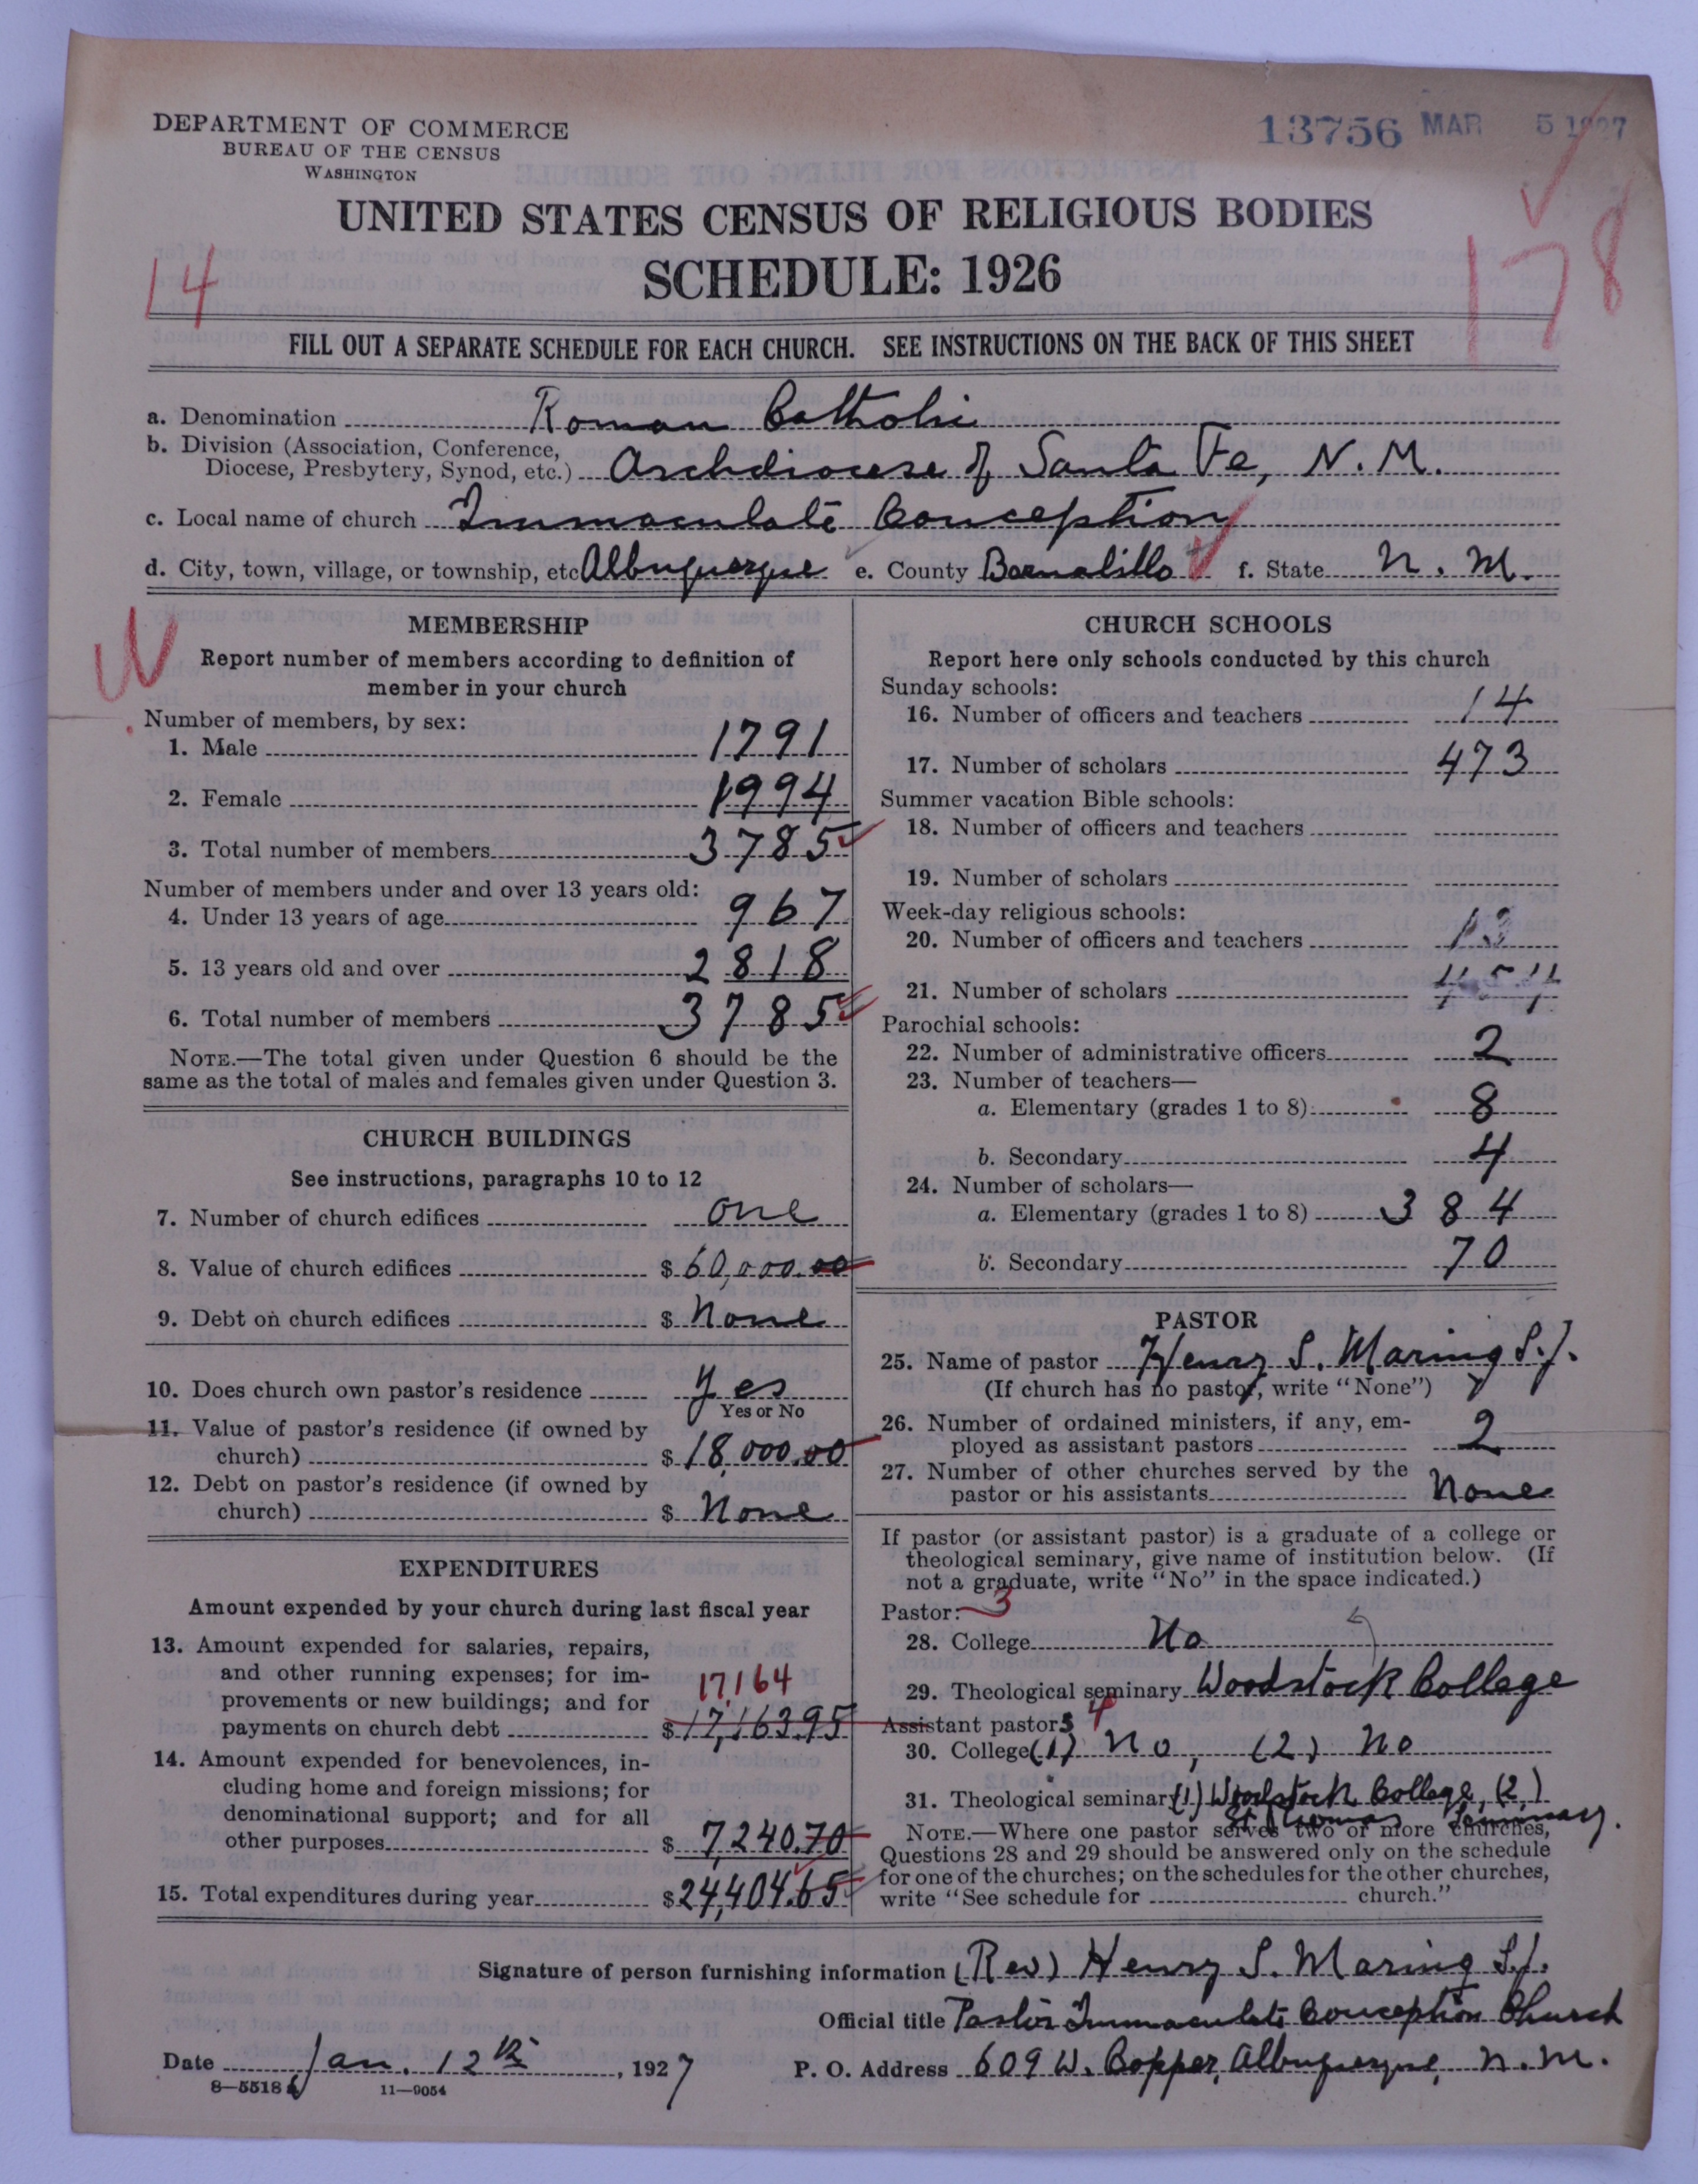 DEPARTMENT OF COMMERCE
BUREAU OF THE CENSUS
WASHINGTON
13756 MAR 5 1927
UNITED STATES CENSUS OF RELIGIOUS BODIES
SCHEDULE: 1926
14
178
FILL OUT A SEPARATE SCHEDULE FOR EACH CHURCH. SEE INSTRUCTIONS ON THE BACK OF THIS SHEET
a. Denomination Roman Catholic
b. Division (Association, Conference,
Diocese, Presbytery, Synod, etc.) Archdiocese of Santa Fe, N.M.
c. Local name of church Immaculate Conception
d. City, town, village, or township, etc Albuquerque e. County Bernalillo f. State N. M.
MEMBERSHIP
Report number of members according to definition of
member in your church
Number of members, by sex:
1. Male 1791
2. Female 1994
3. Total number of members 3785
Number of members under and over 13 years old:
4. Under 13 years of age 967
5. 13 years old and over 2818
6. Total number of members 3785
NOTE.—The total given under Question 6 should be the
same as the total of males and females given under Question 3.
CHURCH BUILDINGS
See instructions, paragraphs 10 to 12
7. Number of church edifices one
8. Value of church edifices $ 60,000.00
9. Debt on church edifices $ None
10. Does church own pastor's residence Yes
Yes or No
11. Value of pastor's residence (if owned by
church) $ 18,000.00
12. Debt on pastor's residence (if owned by
church) $ None
EXPENDITURES
Amount expended by your church during last fiscal year
13. Amount expended for salaries, repairs,
and other running expenses; for im-
17,164
provements or new buildings; and for
payments on church debt $ 17,163.95
14. Amount expended for benevolences, in-
cluding home and foreign missions; for
denominational support; and for all
other purposes $ 7,240.70
15. Total expenditures during year $ 24,404.65
CHURCH SCHOOLS
Report here only schools conducted by this church
Sunday schools:
16. Number of officers and teachers 14
17. Number of scholars 473
Summer vacation Bible schools:
18. Number of officers and teachers
19. Number of scholars
Week-day religious schools:
20. Number of officers and teachers 13
21. Number of scholars 454
Parochial schools:
22. Number of administrative officers 2
23. Number of teachers—
a. Elementary (grades 1 to 8) 8
b. Secondary 4
24. Number of scholars—
a. Elementary (grades 1 to 8) 384
b. Secondary 70
PASTOR
25. Name of pastor Henry S. Maring S.J.
(If church has no pastor, write "None")
26. Number of ordained ministers, if any, em-
ployed as assistant pastors 2
27. Number of other churches served by the
pastor or his assistants None
If pastor (or assistant pastor) is a graduate of a college or
theological seminary, give name of institution below. (If
not a graduate, write "No" in the space indicated.)
Pastor: 3
28. College No
29. Theological seminary Woodstock College
Assistant pastors 4
30. College (1) No, (2) No
31. Theological seminary (1) Woodstock College, (2)
St Thomas Seminary.
NOTE.—Where one pastor serves two or more churches,
Questions 28 and 29 should be answered only on the schedule
for one of the churches; on the schedules for the other churches,
write "See schedule for church."
Signature of person furnishing information (Rev) Henry S. Maring S.J.
Official title Pastor Immaculate Conception Church
Date Jan. 12th, 1927
P. O. Address 609 W. Copper, Albuquerque, N.M.
8—5518 b
11—9054